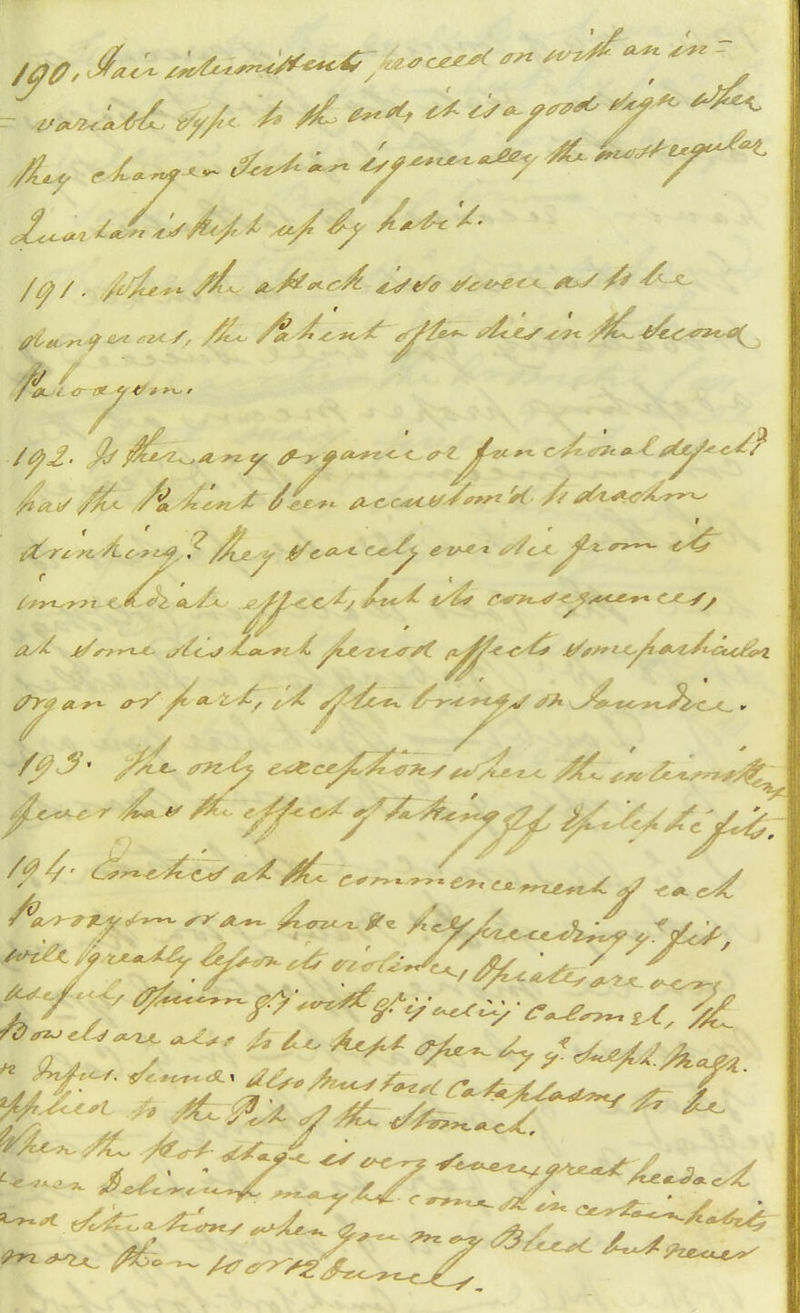 190, Fair intermittents proceed on with an in-
-variable type to the end, it is a good sign when
they change - Tertian is generally the most regular
Quartan is kept up by habit.
191. When the attack is so severe as to be
dangerous, the Patient often dies in the second
Paroxysm,
192. Is there any organic or functional defect?
has the Patient been accustom'd to dram
drinking? they scarcely ever die from its
immediate effect, but its consequences,
at some distant period affects some particular
organ or part, it often brings on Jaundice.
193. The only exceptions where the intermittent
fever has the effect of taking off Epileptic fits.
194. Emetics at the commencement of each
Paroxysm or an hour or preceeding ye fit,
will greatly lessen its violence, Opiates are very
useful, Opium gr j with gr ij Calomel, the
Bowels are also to be kept open by ye Sulph. Magn.
Infus. Sennæ. Also Mustard Cataplasms to be
applied to the Pit of the Stomach.
When the Hot Stage is very severe, great headach
even Delirium may come on in certain habits
and situations when you may Bleed but never
more than 10 or 12 Ounces.